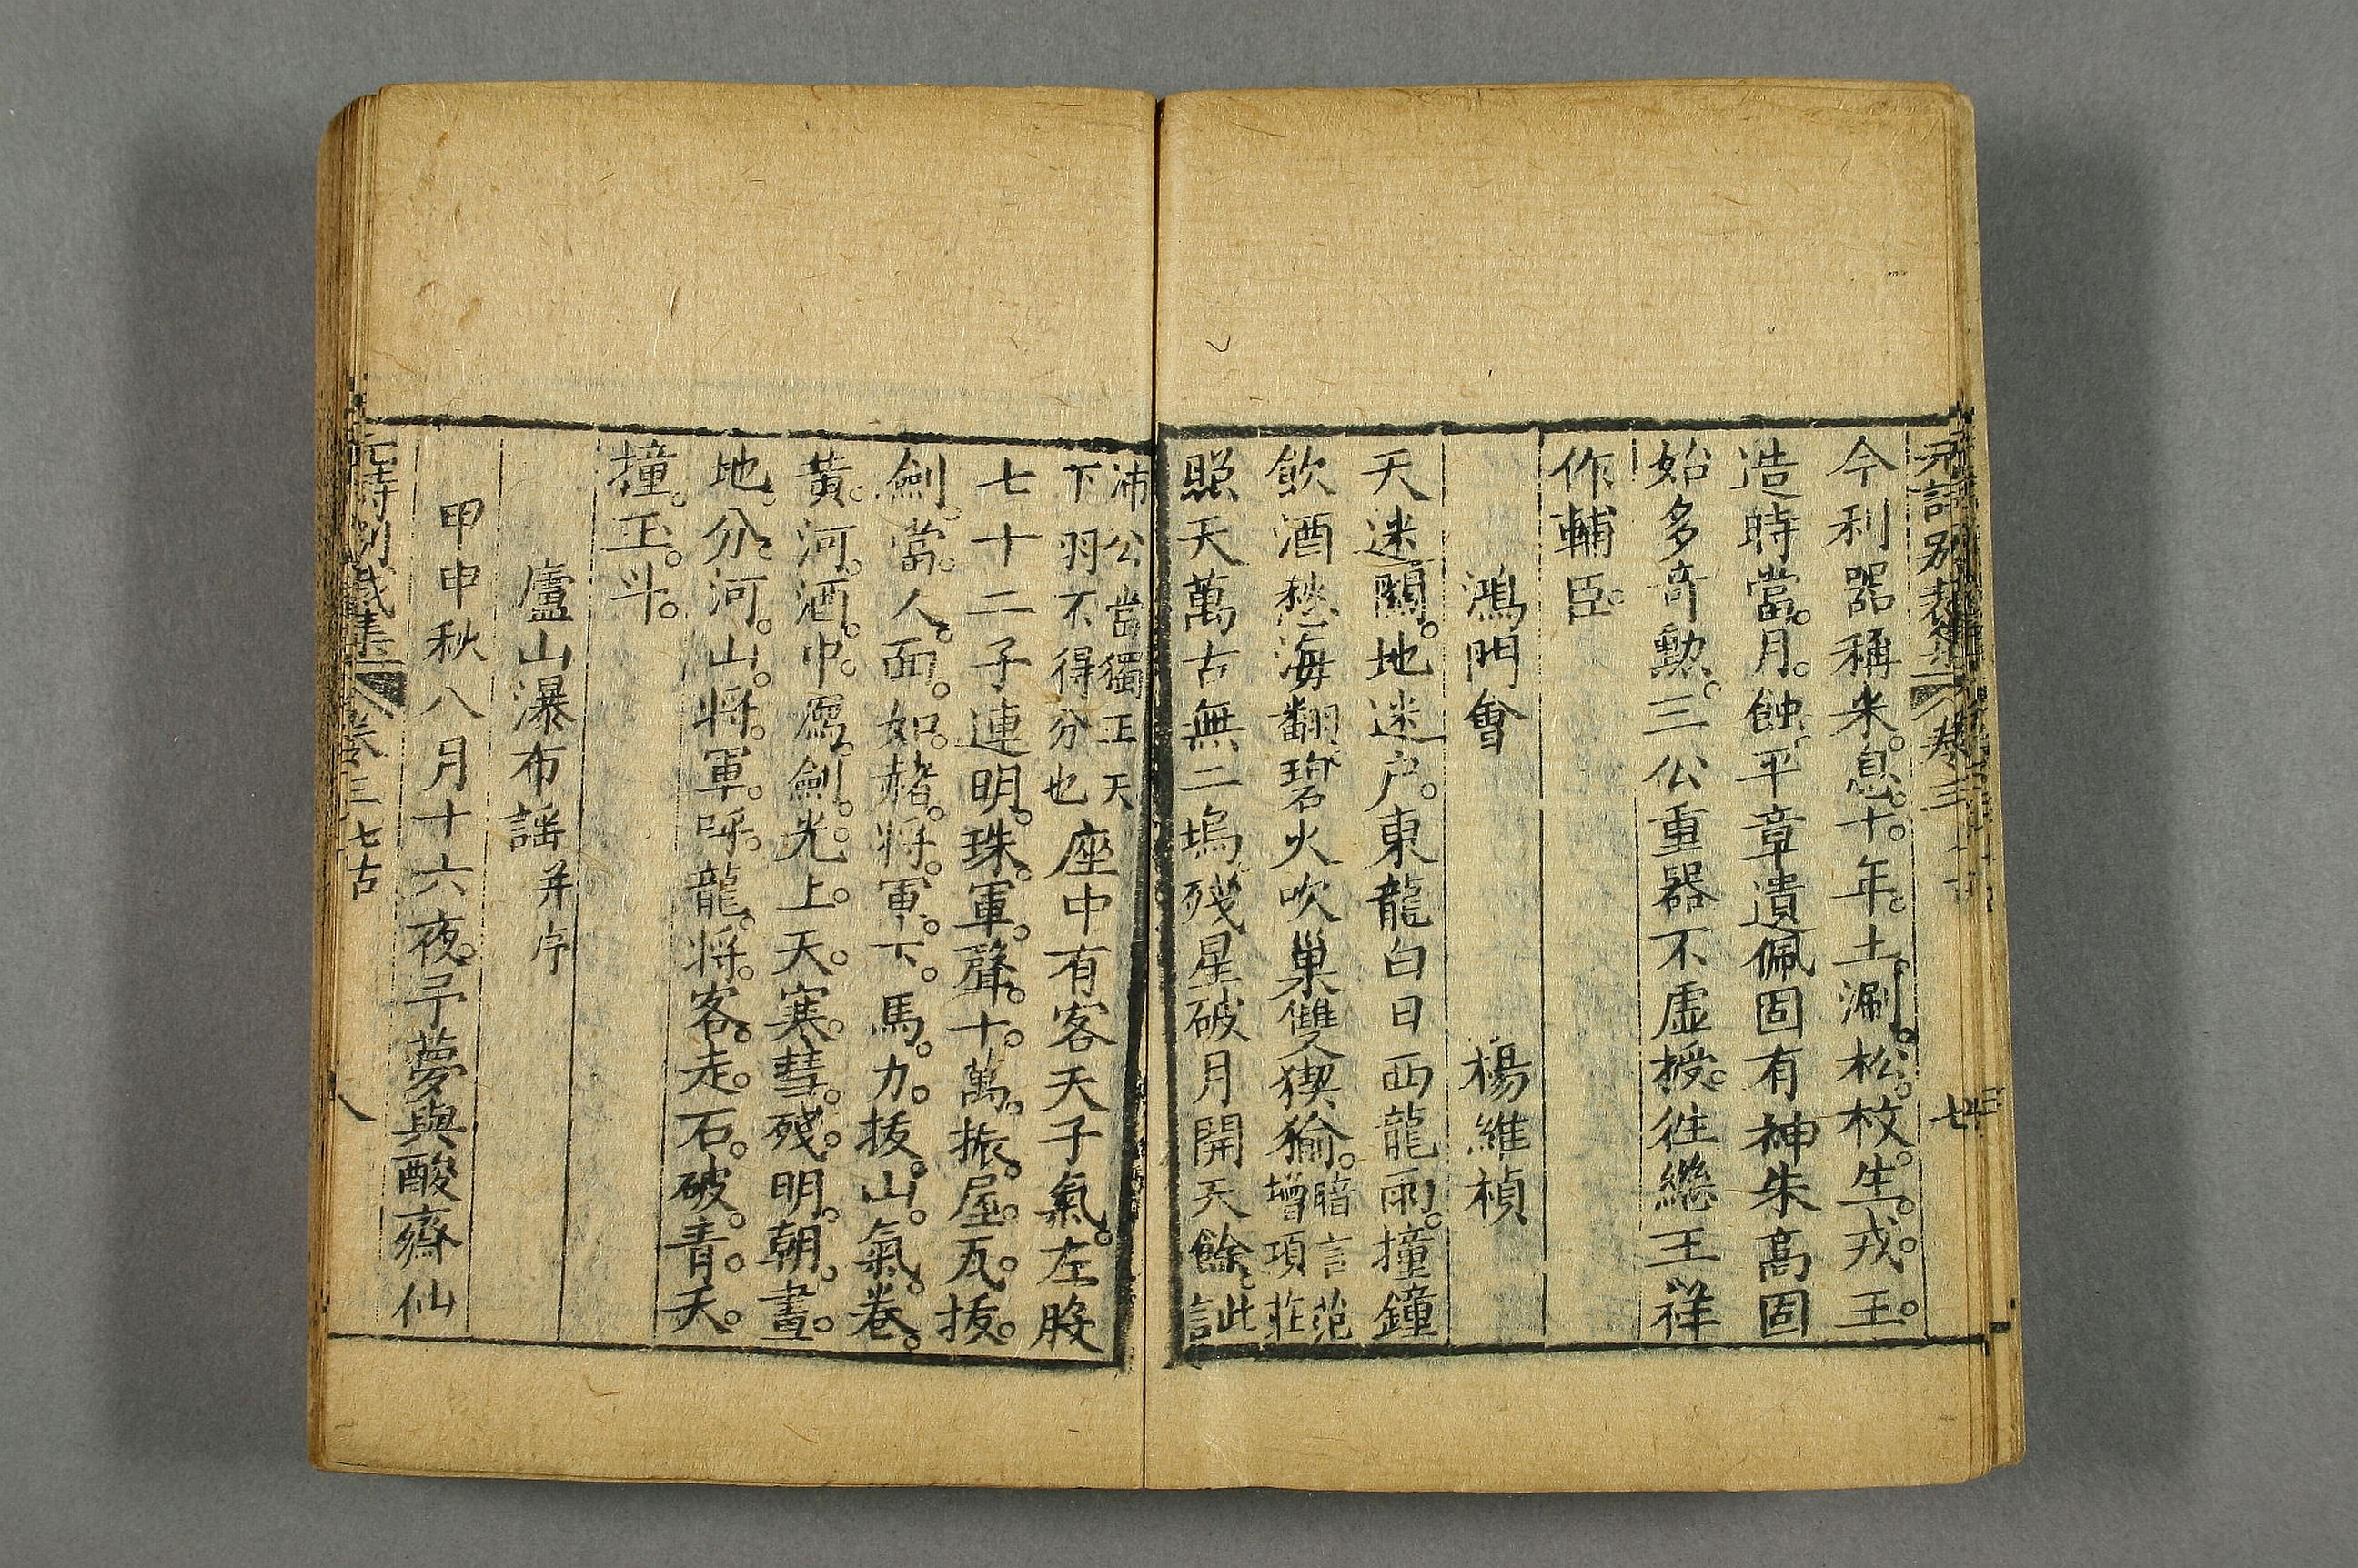 元詩別裁集 卷三 七古 七
今利器稱朱息十年土涮松枚生戎王
造時當月蝕平章遺佩固有神朱高固
始多奇勲三公重器不虛授往繼王祥
作輔臣
鴻門會 楊維楨
天迷關地迷户東龍白日西龍雨撞鐘
飲酒愁海翻碧火吹巢雙猰㺄暗言范增項莊
照天萬古無二塢殘星破月開天餘此言
沛公當獨王天下羽不得分也座中有客天子氣左股
七十二子連明珠軍聲十萬振屋瓦拔
劍當人面如赭將軍下馬力拔山氣卷
黃河酒中寫劍光上天寒彗殘明朝畫
地分河山將軍呼龍將客走石破青天
撞玉斗
廬山瀑布謡并序
甲申秋八月十六夜予夢與酸齋仙
元詩別裁集 卷三 七古 八